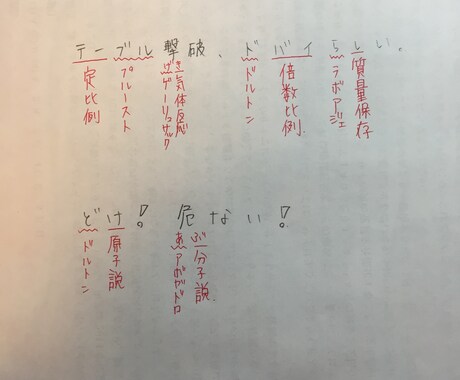 テーブル撃破、ドバイらしい。
定比例
プルースト
げ
ゲーリュサック
き
気体反応
ドルトン
倍数比例.
ラボアジェ
質量保存
どけ! 危ない!
ドルトン
原子説
あ
アボガドロ
ぶ
分子説.